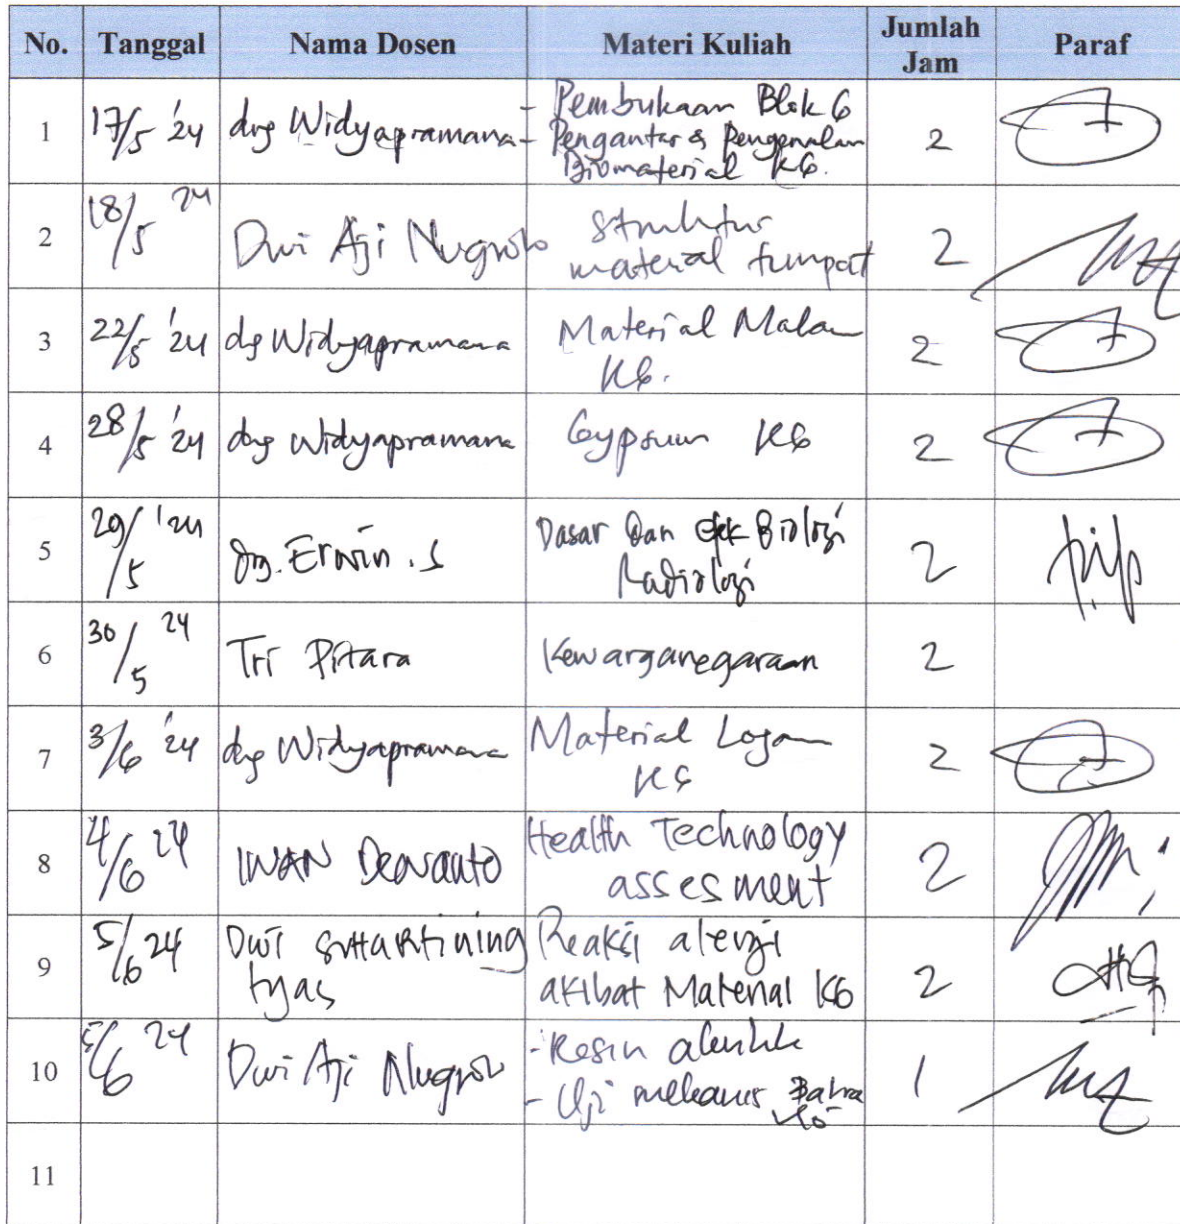 No. Tanggal Nama Dosen Materi Kuliah Jumlah Jam Paraf
1 17/5 '24 drg Widyapramana - Pembukaan Blok 6
- Pengantar & Pengenalan
Biomaterial KG.
2
2 18/5 24 Dwi Aji Nugroho Struktur
material tumpat
2
3 22/5 '24 drg Widyapramana Material Malam
KG.
2
4 28/5 '24 drg Widyapramana Gypsum KG 2
5 29/5 '24 drg. Erwin .S Dasar Dan Efek Biologi
Radiologi
2
6 30/5 24 Tri Pitara Kewarganegaraan 2
7 3/6 '24 drg Widyapramana Material Logam
KG
2
8 4/6 24 IWAN Dewanto Health Technology
assesment
2
9 5/6 24 Dwi SUHARTININg
tyas
Reaksi alergi
akibat Material KG
2
10 5/6 24 Dwi Aji Nugroho - Resin akrilik
- Uji mekanis Bahan
KG
1
11